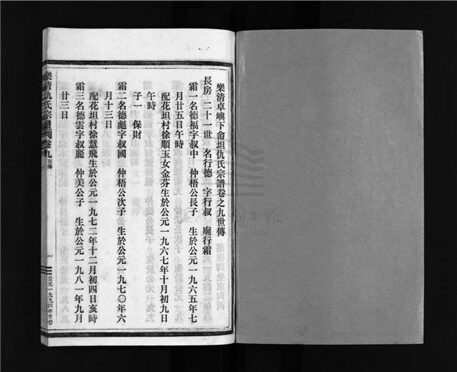 樂清卓嶼下畬坦仇氏宗譜卷之九世傳
長房 二十一世 名行德 字行叔 廟行霜
霜一名德福字叔中 仲梧公長子 生於公元一九六五年七
月廿五日午時
配花坦村徐順玉女金芬生於公元一九六七年十月初九日
午時
子一 保財
霜二名德彪字叔國 仲梧公次子 生於公元一九七〇年六
月十三日
配花坦村徐慧飛生於公元一九七二年十二月初四日亥時
霜三名德雲字叔龍 仲美公子 生於公元一九八一年九月
廿三日
樂清仇氏宗譜 卷九
一